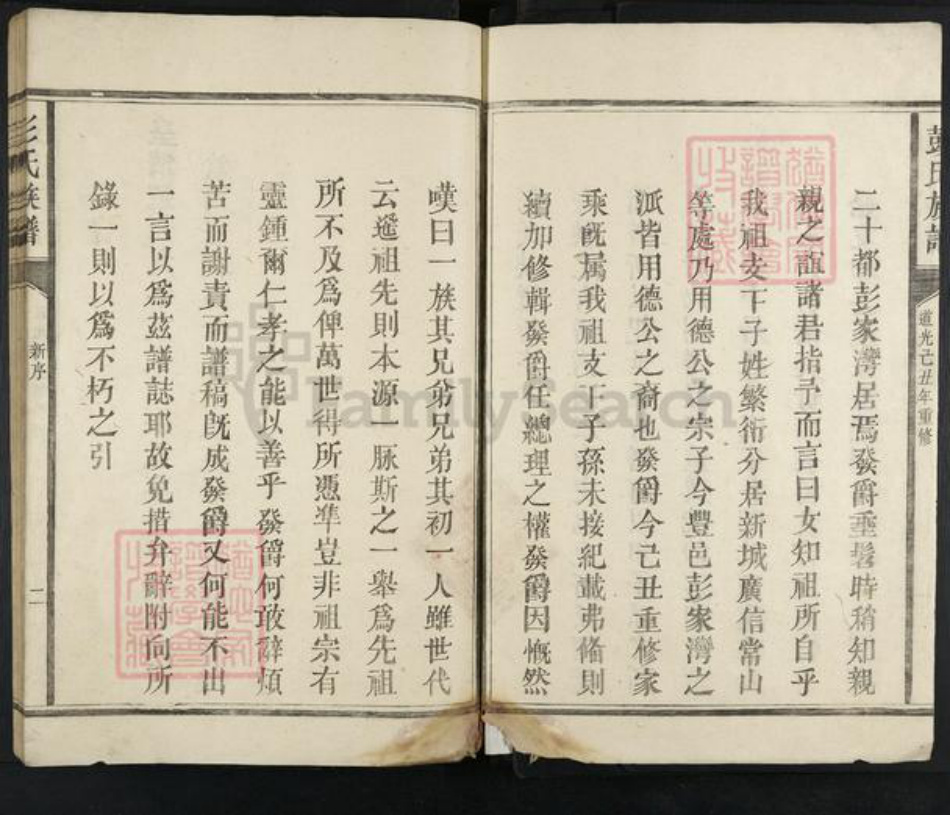 彭氏族譜
道光己丑年重修
二十都彭家灣居焉發爵垂髫時稍知親
親之誼諸君指予而言曰女知祖所自乎
我祖支干子姓繁衍分居新城廣信常山
等處乃用德公之宗子今豐邑彭家灣之
派皆用德公之裔也發爵今己丑重修家
乘旣属我祖支干子孫未接紀載弗偹則
續加修輯發爵任總理之權發爵因慨然
嘆曰一族其兄弟兄弟其初一人雖世代
云遙祖先則本源一脉斯之一舉爲先祖
所不及爲俾萬世得所憑凖豈非祖宗有
靈鍾爾仁孝之能以善乎發爵何敢辭煩
苦而謝責而譜稿旣成發爵又何能不出
一言以爲茲譜誌耶故免措弁辭附向所
錄一則以爲不朽之引
彭氏族譜
新序
二
FamilySearch